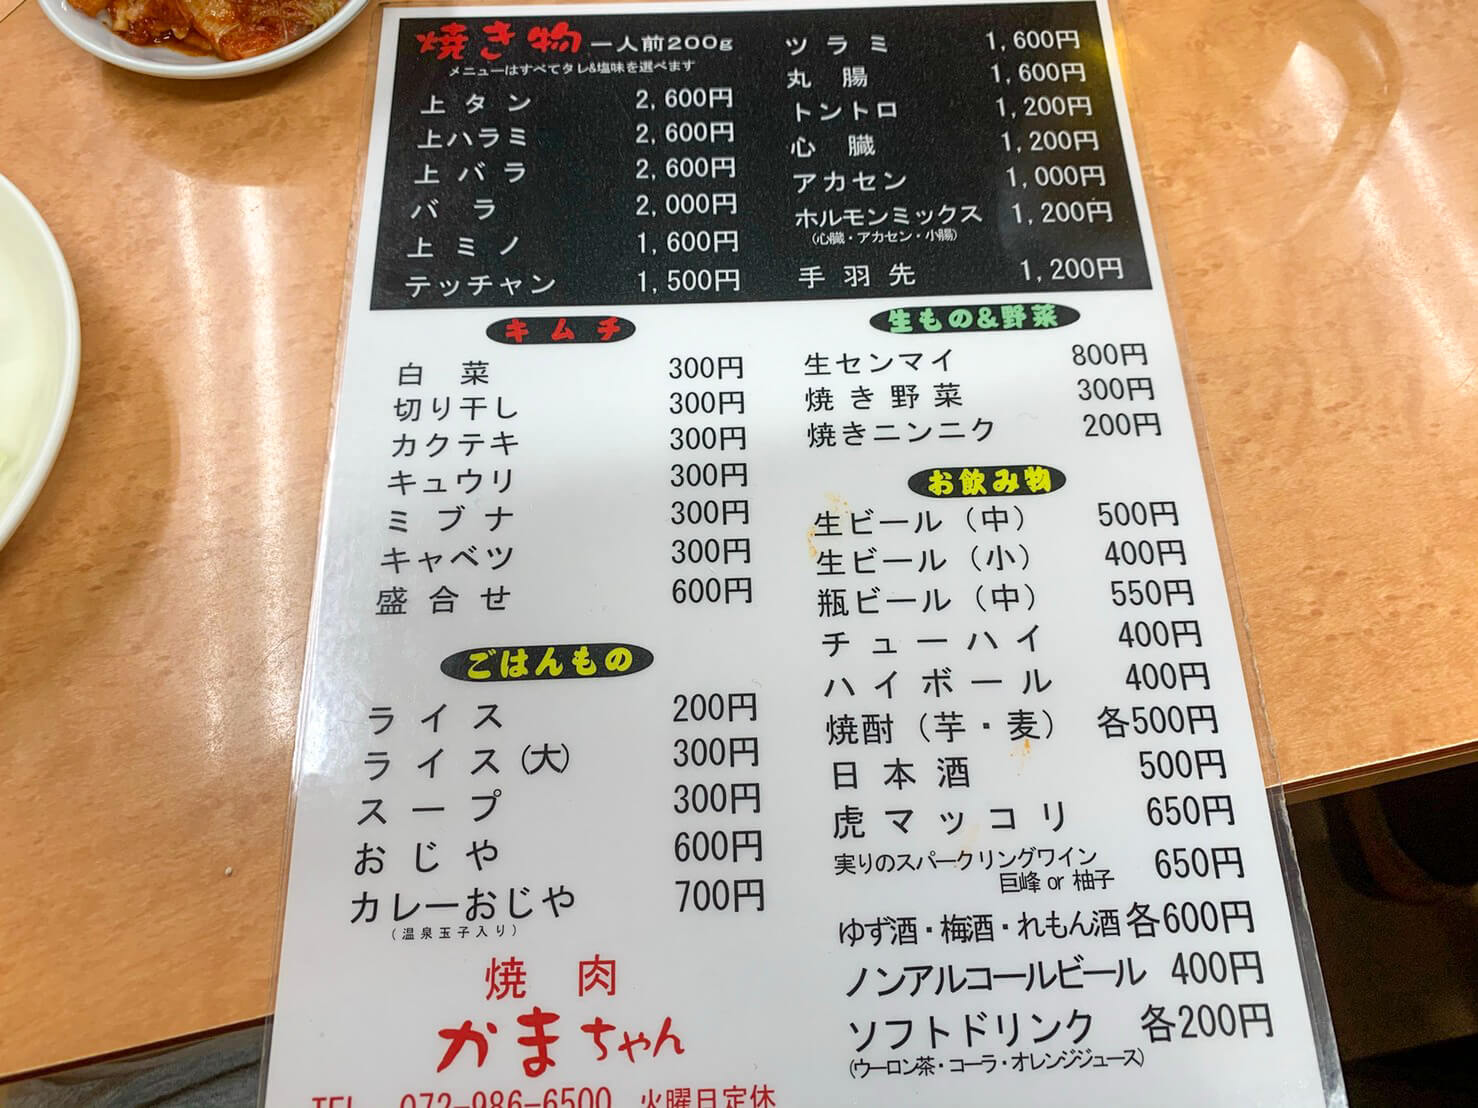 焼き物 一人前200g
メニューはすべてタレ&塩味を選べます
上タン 2,600円
上ハラミ 2,600円
上バラ 2,600円
バラ 2,000円
上ミノ 1,600円
テッチャン 1,500円
ツラミ 1,600円
丸腸 1,600円
トントロ 1,200円
心臓 1,200円
アカセン 1,000円
ホルモンミックス 1,200円
(心臓・アカセン・小腸)
手羽先 1,200円
キムチ
白菜 300円
切り干し 300円
カクテキ 300円
キュウリ 300円
ミブナ 300円
キャベツ 300円
盛合せ 600円
ごはんもの
ライス 200円
ライス(大) 300円
スープ 300円
おじや 600円
カレーおじや 700円
(温泉玉子入り)
生もの&野菜
生センマイ 800円
焼き野菜 300円
焼きニンニク 200円
お飲み物
生ビール(中) 500円
生ビール(小) 400円
瓶ビール(中) 550円
チューハイ 400円
ハイボール 400円
焼酎(芋・麦) 各500円
日本酒 500円
虎マッコリ 650円
実りのスパークリングワイン 650円
巨峰 or 柚子
ゆず酒・梅酒・れもん酒 各600円
ノンアルコールビール 400円
ソフトドリンク 各200円
(ウーロン茶・コーラ・オレンジジュース)
焼肉
かまちゃん
TEL 072-986-6500 火曜日定休